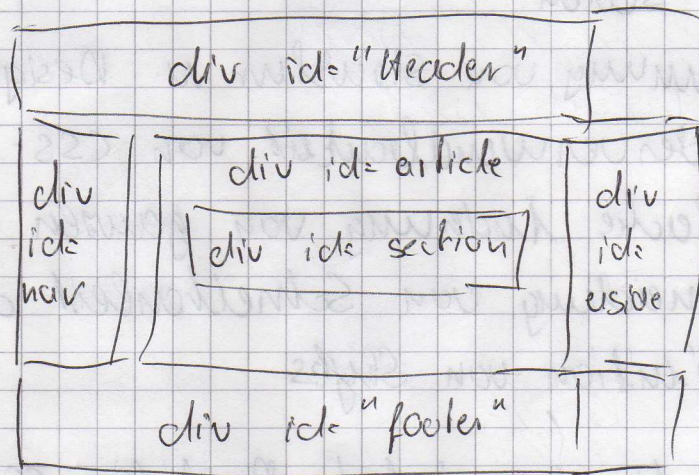 div id="Header"
div
id=
nav
div id= article
div id= section
div
id=
aside
div id="footer"